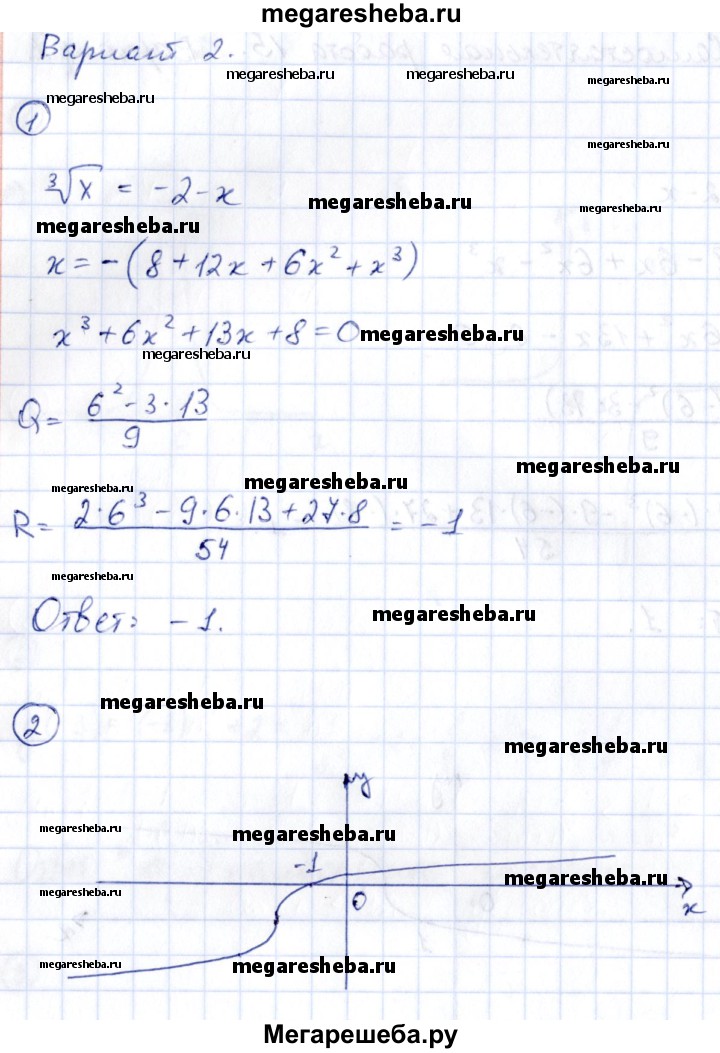 megaresheba.ru
Вариант 2.
megaresheba.ru megaresheba.ru megaresheba.ru
megaresheba.ru
1
megaresheba.ru
∛x = -2-x
megaresheba.ru megaresheba.ru
megaresheba.ru
x = -(8+12x+6x²+x³)
x³+6x²+13x+8=0
megaresheba.ru
megaresheba.ru
Q = (6²-3·13)/9
megaresheba.ru
megaresheba.ru megaresheba.ru
R = (2·6³-9·6·13+27·8)/54 = -1
megaresheba.ru
Ответ: -1.
megaresheba.ru
megaresheba.ru
2
megaresheba.ru
y
megaresheba.ru megaresheba.ru
-1
megaresheba.ru megaresheba.ru
0 x
megaresheba.ru megaresheba.ru
Мегарешеба.ру